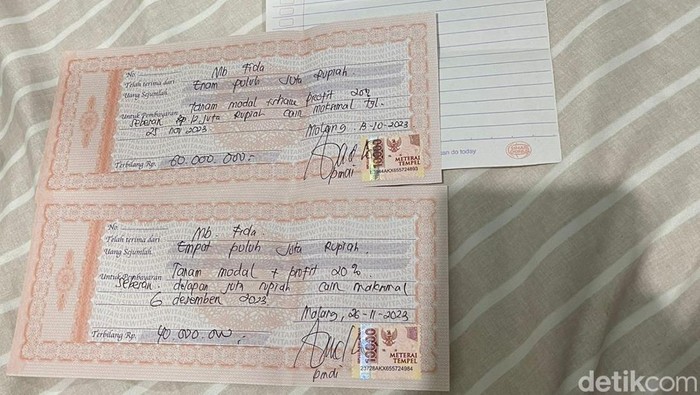 No.
Telah terima dari
Mb Fida
Uang Sejumlah.
Enam puluh Juta Rupiah
Untuk Pembayaran
Tanam modal profit 20%
Sebesar Rp 12 Juta Rupiah Cair maksimal tgl.
25 nov 2023
Malang 13-10-2023
Terbilang Rp.
60.000.000,-
10000
METERAI
TEMPEL
pmdi
No.
Telah terima dari
Mb Fida
Uang Sejumlah.
Empat puluh Juta Rupiah
Untuk Pembayaran
Tanam modal + profit 20%
Sebesar delapan juta rupiah Cair maksimal
6 desember 2023
Malang, 26-11-2023
Terbilang Rp.
40.000.000,-
10000
METERAI
TEMPEL
23728AKX655724984
pmdi
do today
detikcom